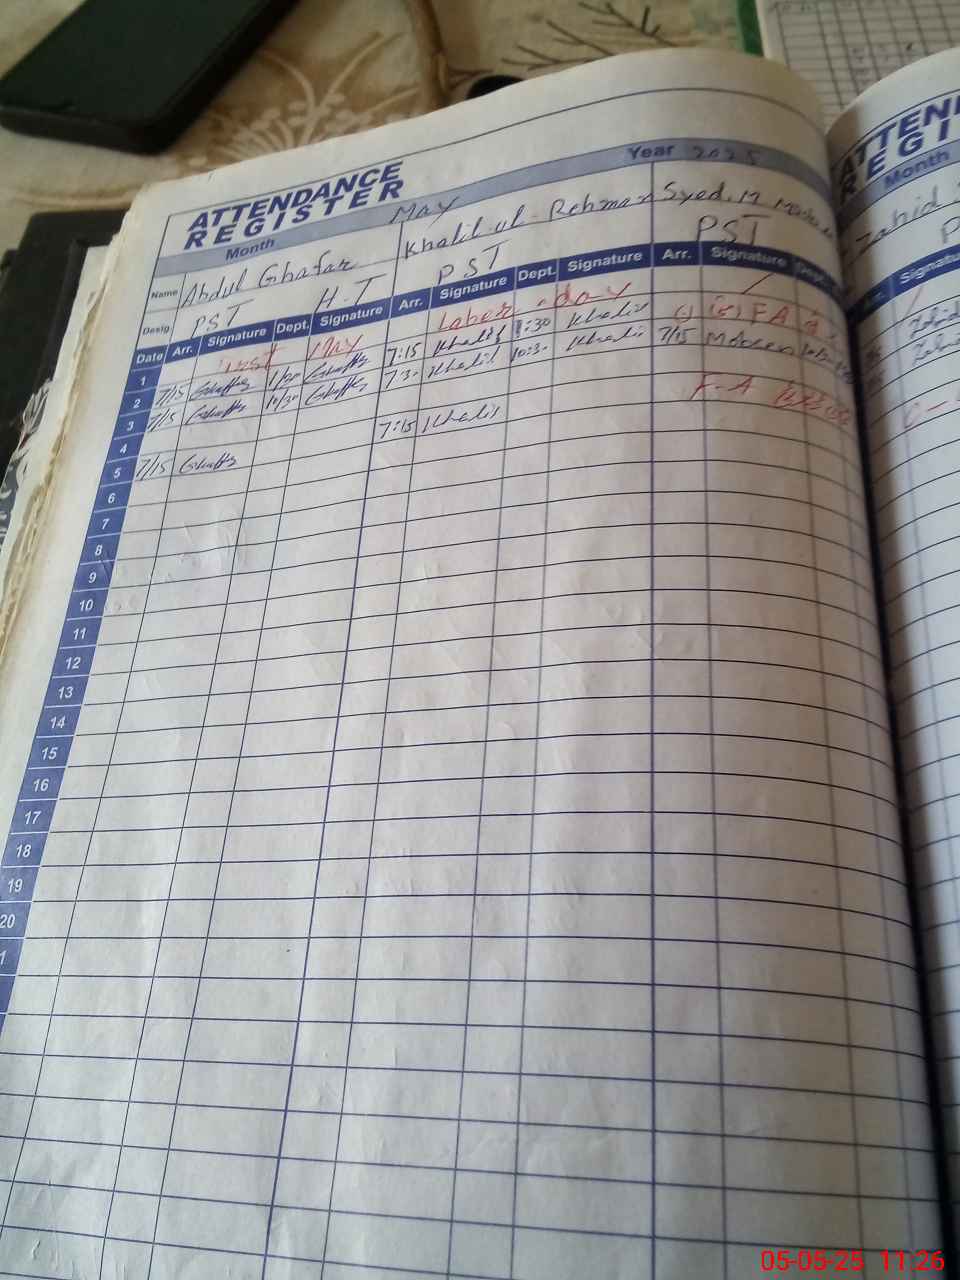 ATTENDANCE
REGISTER
Month May Year 2025
Name Abdul Ghafar Khalil-ul-Rehman Syed. M
Desig. PST H.T PST PST
Date Arr. Signature Dept. Signature Arr. Signature Dept. Signature Arr. Signature Dept.
1 May Labor day
2 7/15 Ghaffar 1/30 Ghaffar 7:15 Khalil 1:30 Khalil F A
3 7/15 Ghaffar 10/30 Ghaffar 7:30 Khalil 10:30 Khalil 7/15 Mobeen
4
5 7/15 Ghaffar 7:15 Khalil F-A
6
7
8
9
10
11
12
13
14
15
16
17
18
19
20
1
ATTEN
REGI
Month
Zahid
P
Arr. Signatu
Zahid
Zahid
C-
05-05-25 11:26